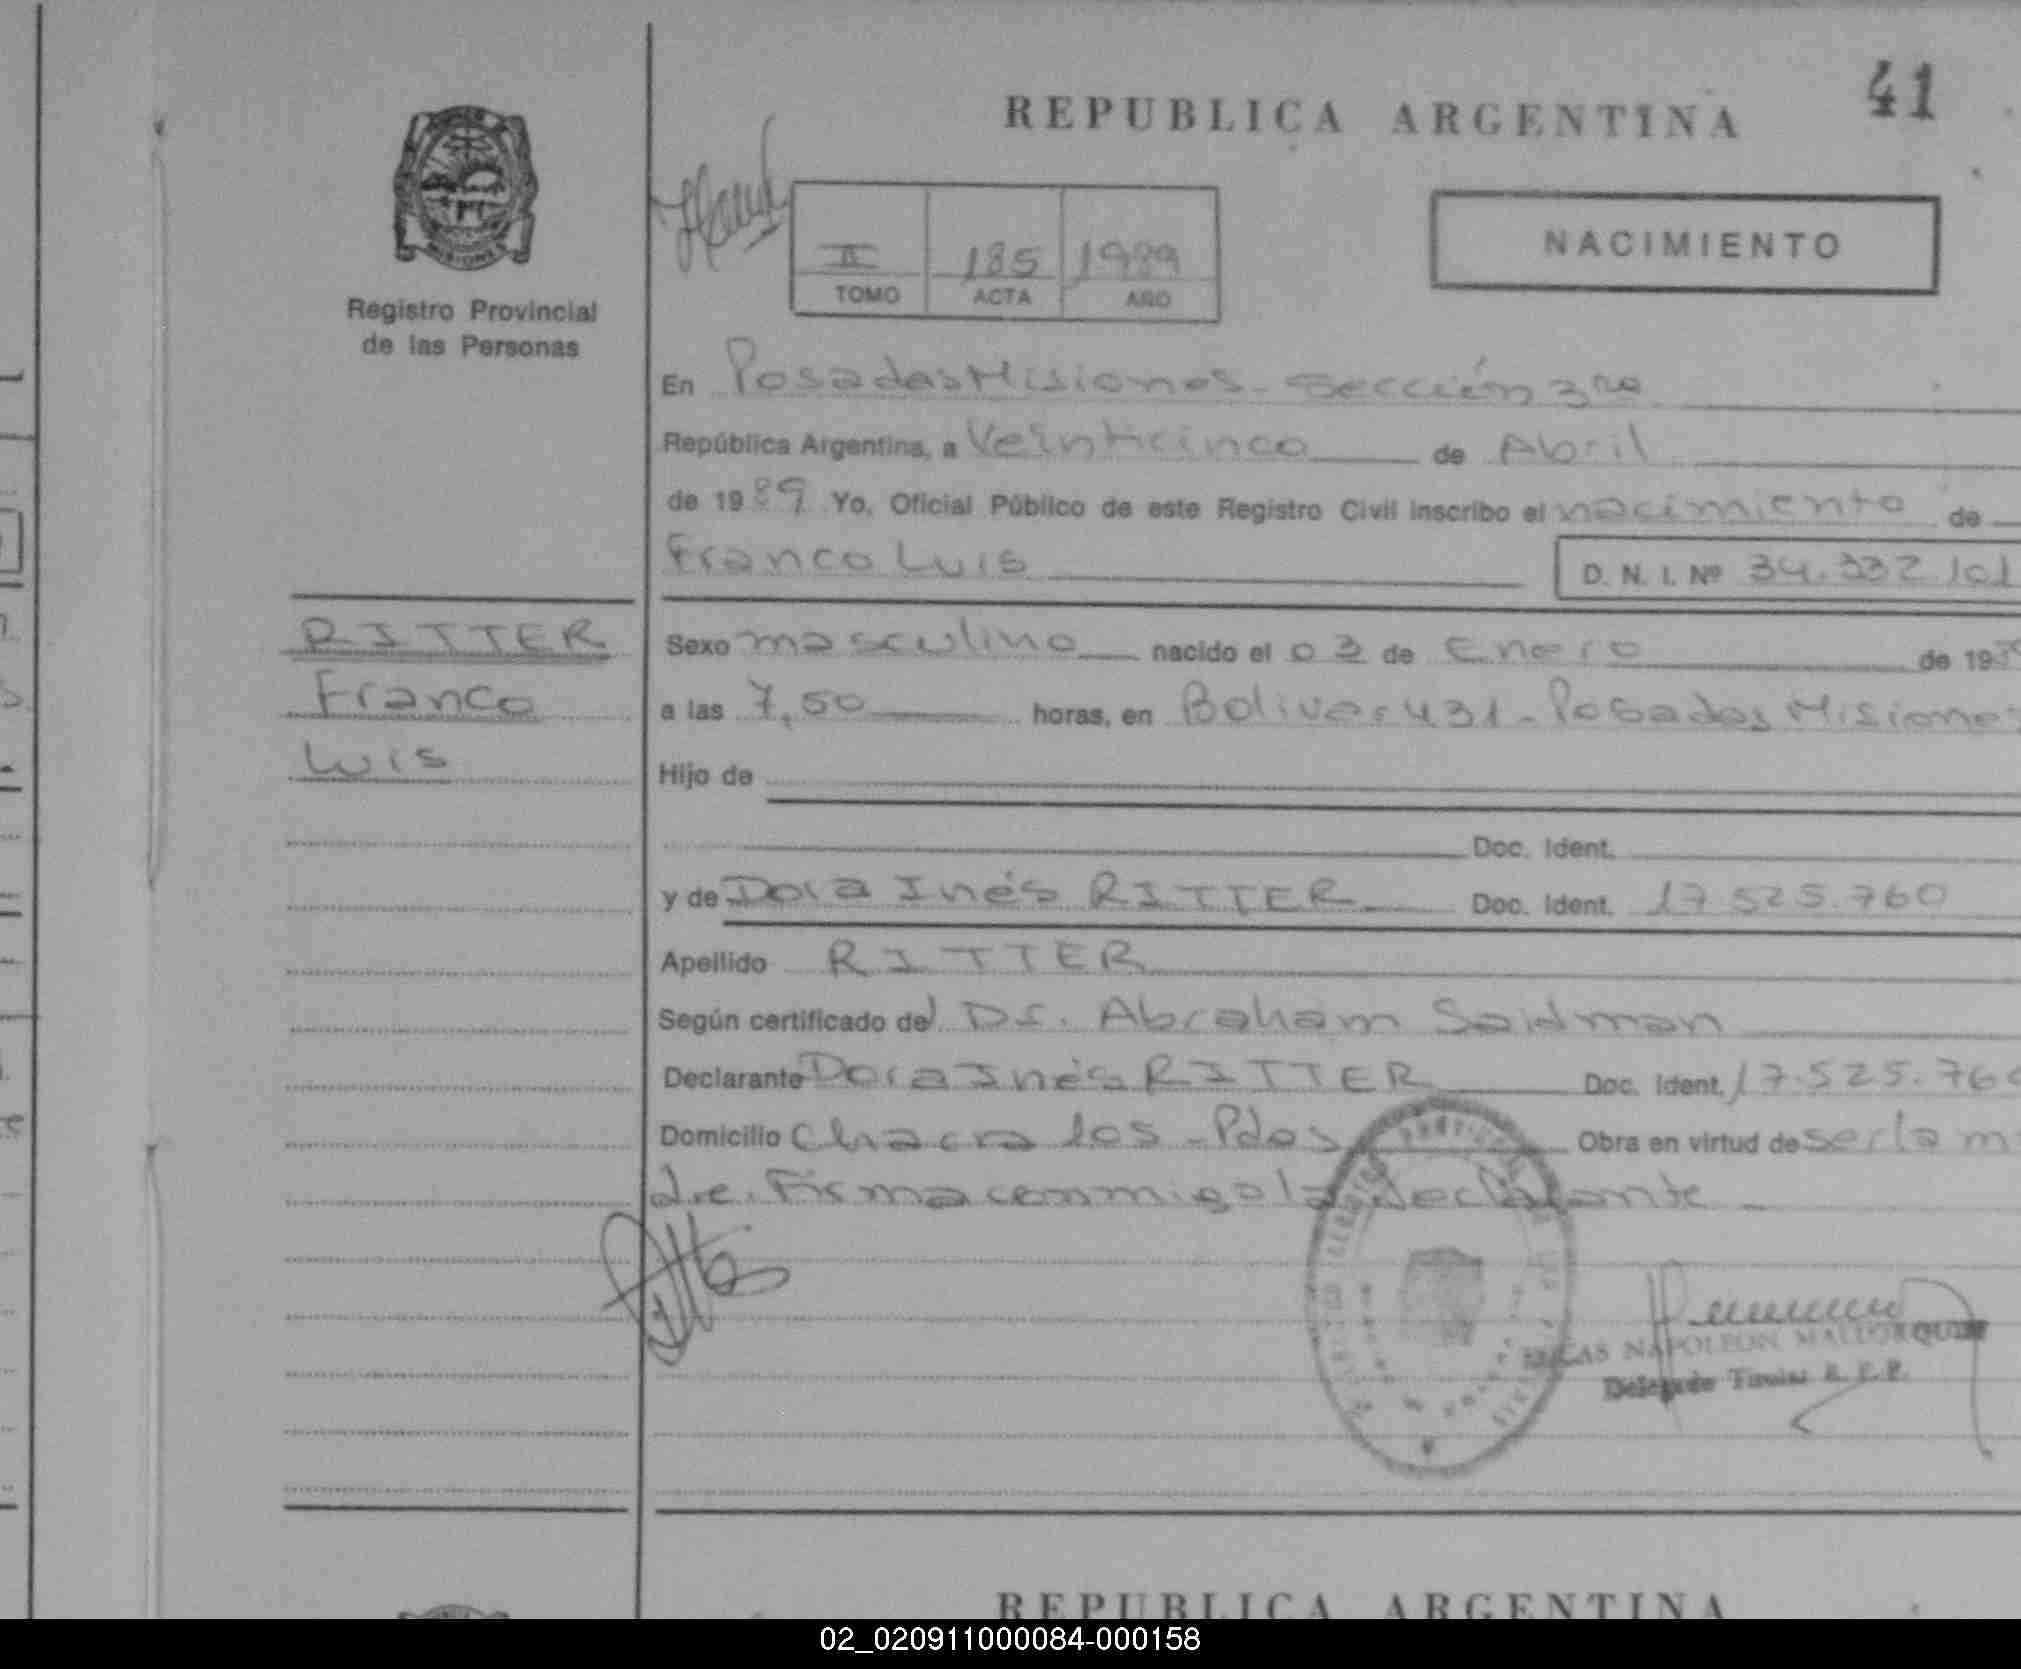 REPUBLICA ARGENTINA
41
MISIONES
Registro Provincial
de las Personas
II 185 1989
TOMO ACTA AÑO
NACIMIENTO
En Posadas Misiones - Sección 3ra
República Argentina, a Veinticinco de Abril
de 1989 Yo, Oficial Público de este Registro Civil inscribo el nacimiento de
Franco Luis D. N. I. Nº 34.332.101
RITTER
Franco
Luis
Sexo masculino nacido el 03 de Enero de 19
a las 7,50 horas, en Bolivar 431 - Posadas Misiones
Hijo de
Doc. Ident.
y de Dora Inés RITTER Doc. Ident. 17.525.760
Apellido RITTER
Según certificado del Dr. Abraham Saidman
Declarante Dora Inés RITTER Doc. Ident. 17.525.760
Domicilio Chacra - Pdas Obra en virtud de ser la m
dre. Firma conmigo la declarante
NAPOLEON MALLORQUIN
Delegado Titular R. P. P.
REPUBLICA ARGENTINA
02_020911000084-000158